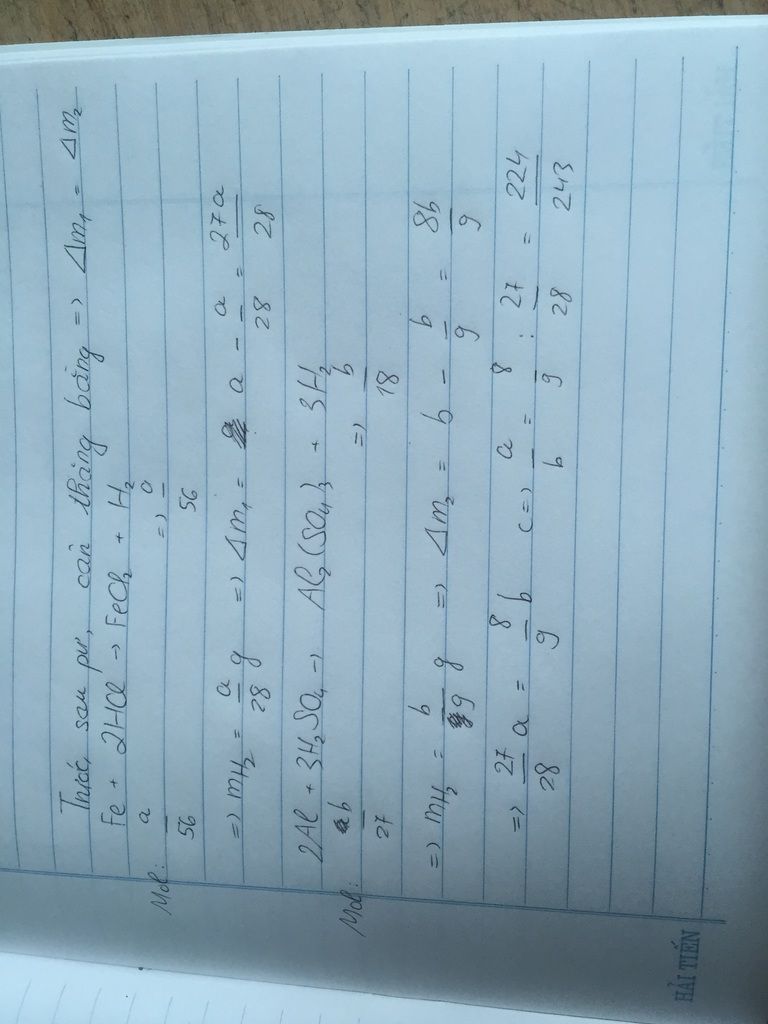 Trước, sau pư, cân thăng bằng => Δm₁ = Δm₂
Fe + 2HCl → FeCl₂ + H₂
Mol: a/56 => a/56
=> mH₂ = a/28 g => Δm₁ = a - a/28 = 27a/28
2Al + 3H₂SO₄ → Al₂(SO₄)₃ + 3H₂
Mol: b/27 => b/18
=> mH₂ = b/9 g => Δm₂ = b - b/9 = 8b/9
=> 27/28 a = 8/9 b <=> a/b = 8/9 : 27/28 = 224/243
HẢI TIẾN